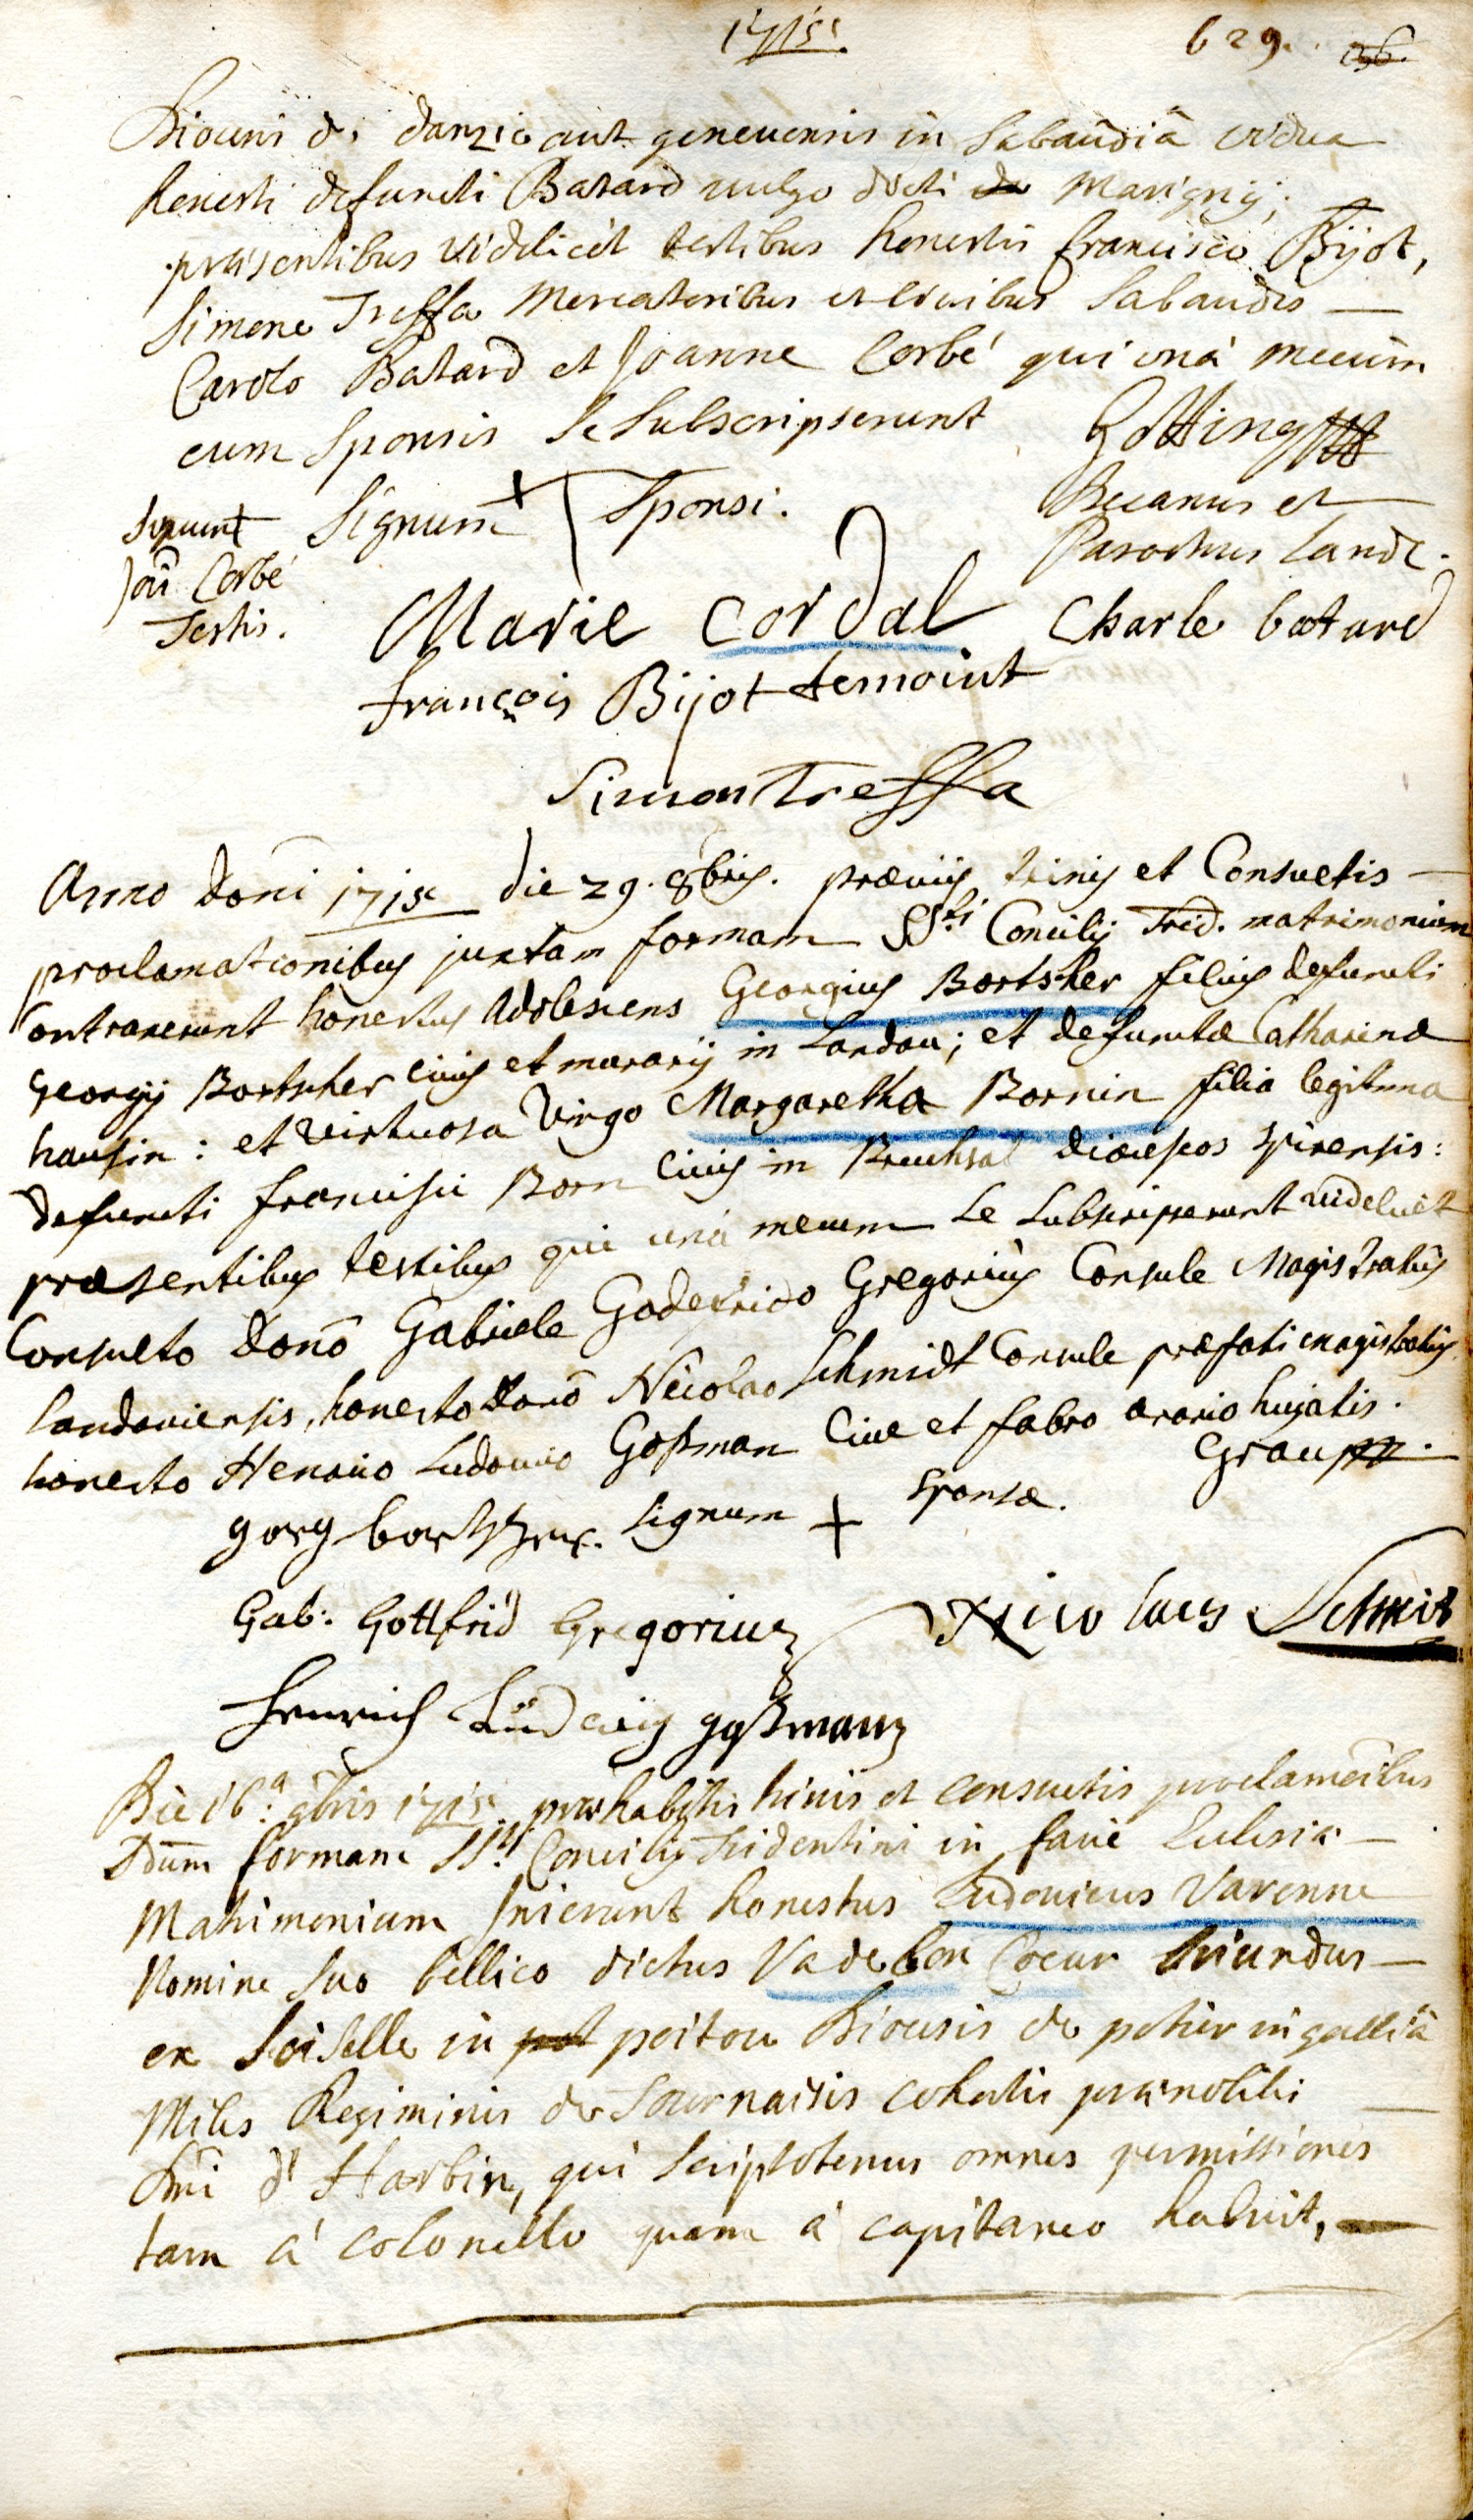 1715.
629. 326.
Diocesis d' danzic aut genevensis in Sabaudiâ vidua
honesti defuncti Batard vulgo dicti de Marigny;
præsentibus videlicet testibus honestis francisco Bijot,
Simone Treffa Mercatoribus et civibus Sabaudis —
Carolo Batard et Joanne Corbé qui unà mecum
cum Sponsis se subscripserunt
Gotting
Decanus et
Parochus Land.
Signum
Signum + Sponsi.
Joñ Corbé
Testis.
Marie Cordal
Charle batard
françois Bijot temoint
Simon Treffa
Anno Doñi 1715 die 29. 8bris. præviis trinis et Consuetis —
proclamationibus juxtam formam SSti Concilij Trid. matrimonium
Contraxerunt honestus Adolescens Georgius Bortsher filius defuncti
Georgij Bortscher civis et murarij in Landau; et defunctæ Catharinæ
hausin: et virtuosa Virgo Margaretha Bornin filia legitima
defuncti francisci Born civis in Bruchsal diœcesos spirensis:
præsentibus testibus qui unà mecum se subscripserunt videlicet
Consulto Donō Gabriele Godefrido Gregorius Consule Magistratûs
landaviensis, honesto Donō Nicolao Schmidt Consule præfati magistratûs
honesto Henrico Ludovico Goßman Cive et fabro ærario hujatis.
Grau
gorg bortscher. Signum + sponsæ.
Gab: Gottfrid Gregorius
Nicolaus Schmit
Henrich Ludwig goßmann
Die 16.a 9bris 1715 præhabitis trinis et consuetis proclamoibus
Sdum formam SSti Concilij Tridentini in facie Ecclesiæ —
Matrimonium Inierunt honestus Ludovicus Varenne
Nomine suo bellico dictus Vadebon Coeur oriundus —
ex Loiselle in pot poitou Diocesis de potier in galliâ
Miles Regiminis de Tournaisis cohortis prænobilis
Dñi d' Harbin, qui scriptotenus omnes permissiones
tam à colonello quam à capitaneo habuit, —